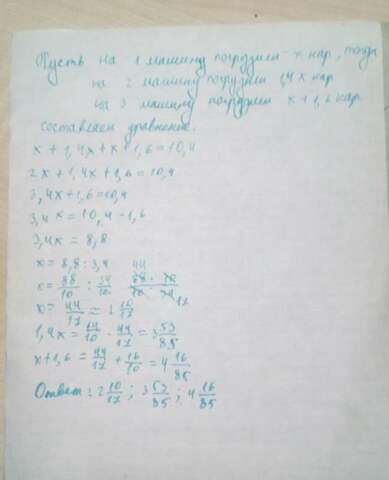 Пусть на 1 машину погрузили x кар, тогда
на 2 машину погрузили 1,4x кар
на 3 машину погрузили x+1,6 кар.
составляем уравнение.
x + 1,4x + x + 1,6 = 10,4
2x + 1,4x + 1,6 = 10,4
3,4x + 1,6 = 10,4
3,4x = 10,4 - 1,6
3,4x = 8,8
x = 8,8 : 3,4
x = 88/10 : 34/10 44 88 · 10 / 10 · 34 17
x = 44/17 = 2 10/17
1,4x = 14/10 · 44/17 = 3 53/85
x+1,6 = 44/17 + 16/10 = 4 16/85
Ответ: 2 10/17 ; 3 53/85 ; 4 16/85